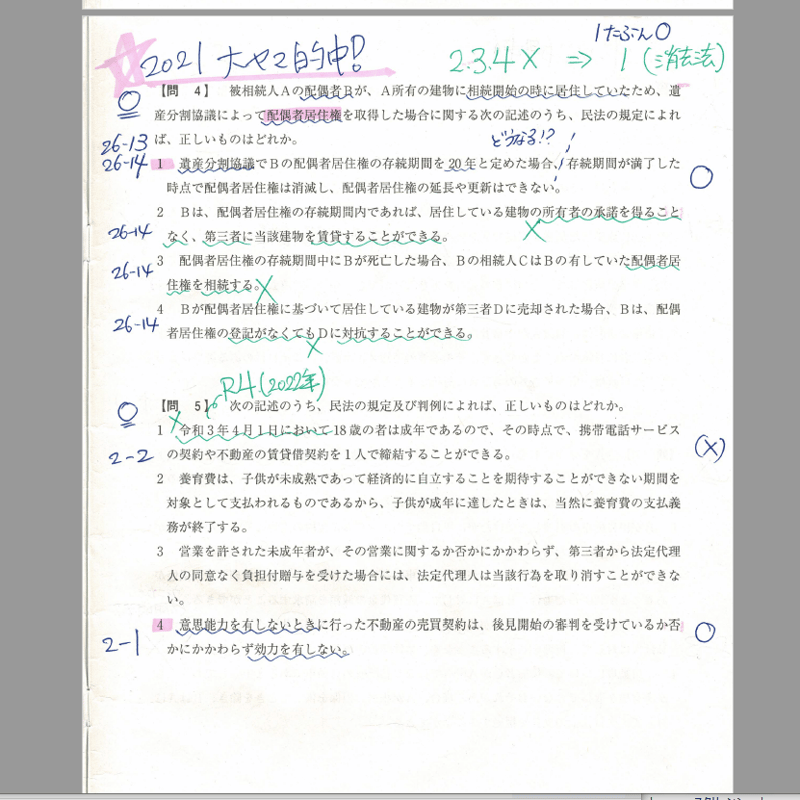 2021 大ヤマ的中!?
1たぶん○
2.3.4× ⇒ 1(消去法)
【問 4】 被相続人Aの配偶者Bが、A所有の建物に相続開始の時に居住していたため、遺
産分割協議によって配偶者居住権を取得した場合に関する次の記述のうち、民法の規定によれ
ば、正しいものはどれか。
26-13
26-14
どうなる!?
1 遺産分割協議でBの配偶者居住権の存続期間を20年と定めた場合、存続期間が満了した
時点で配偶者居住権は消滅し、配偶者居住権の延長や更新はできない。
○
2 Bは、配偶者居住権の存続期間内であれば、居住している建物の所有者の承諾を得ること
なく、第三者に当該建物を賃貸することができる。
26-14
×
3 配偶者居住権の存続期間中にBが死亡した場合、Bの相続人CはBの有していた配偶者居
住権を相続する。
26-14
×
4 Bが配偶者居住権に基づいて居住している建物が第三者Dに売却された場合、Bは、配偶
者居住権の登記がなくてもDに対抗することができる。
26-14
×
R4(2022年)
【問 5】 次の記述のうち、民法の規定及び判例によれば、正しいものはどれか。
×
1 令和3年4月1日において18歳の者は成年であるので、その時点で、携帯電話サービス
の契約や不動産の賃貸借契約を1人で締結することができる。
2-2
(×)
2 養育費は、子供が未成熟であって経済的に自立することを期待することができない期間を
対象として支払われるものであるから、子供が成年に達したときは、当然に養育費の支払義
務が終了する。
3 営業を許された未成年者が、その営業に関するか否かにかかわらず、第三者から法定代理
人の同意なく負担付贈与を受けた場合には、法定代理人は当該行為を取り消すことができな
い。
4 意思能力を有しないときに行った不動産の売買契約は、後見開始の審判を受けているか否
かにかかわらず効力を有しない。
2-1
○